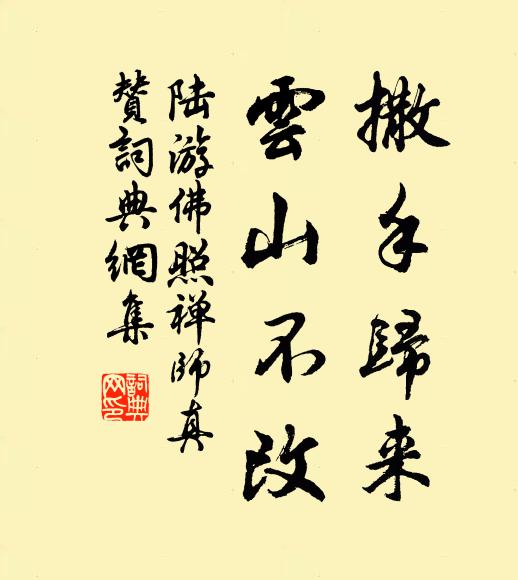 撒手歸来
雲山不改
陆游佛照禅師真
贊詞典網集
詞典网印